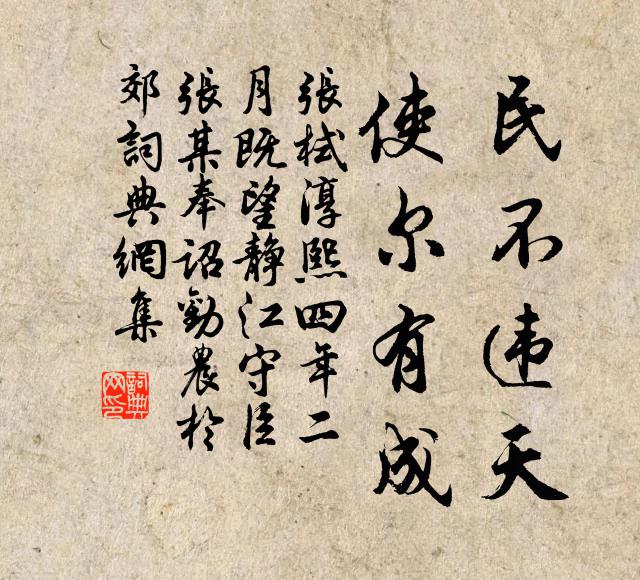 民不违天
使尔有成
張栻淳熙四年二
月既望静江守臣
張某奉詔勸農於
郊詞典網集
詞典
网印